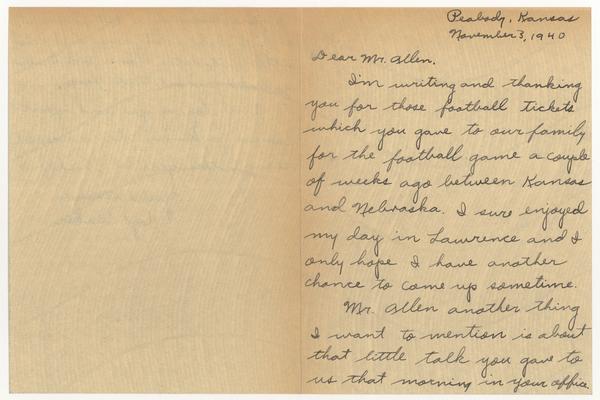 Peabody, Kansas
November 3, 1940
Dear Mr. Allen.
I'm writing and thanking
you for those football tickets
which you gave to our family
for the football game a couple
of weeks ago between Kansas
and Nebraska. I sure enjoyed
my day in Lawrence and I
only hope I have another
chance to come up sometime.
Mr. Allen another thing
I want to mention is about
that little talk you gave to
us that morning in your office.